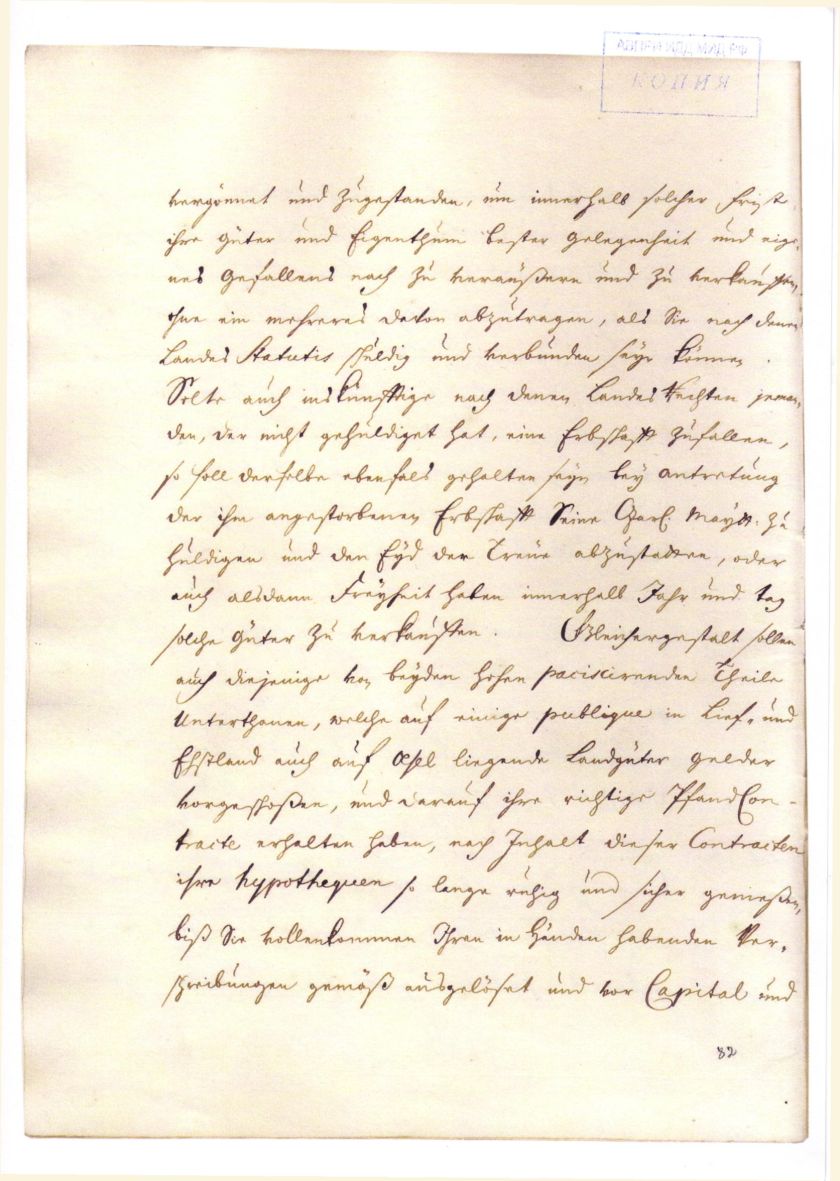 АВПРИ ИДД МИД РФ
КОПИЯ
vergönnet und zugestanden, um innerhalb solcher Frist
ihre Güter und Eigenthum bester Gelegenheit und eige-
nes Gefallens nach zu veräußern und zu verkauffen,
ohne ein mehreres davon abzutragen, als Sie nach denen
Landes Statutis schuldig und verbunden seyn können.
Solte auch inskünfftige nach denen Landes Rechten jeman-
den, der nicht gehuldiget hat, eine Erbschafft zufallen,
so soll derselbe ebenfals gehalten seyn bey antretung
der ihm angestorbenen Erbschafft Seiner Czarl. Maytt. zu
huldigen und den Eyd der Treue abzustatten, oder
auch alsdann Freyheit haben innerhalb Jahr und tag
solche Güter zu verkauffen. Gleichergestalt sollen
auch diejenige von beyden hohen paciscirenden Theile
Unterthanen, welche auf einige publique in Lief- und
Ehstland auch auf Osel liegende Landgüter gelder
vorgeschoßen, und darauf ihre richtige PfandCon-
tracte erhalten haben, nach Inhalt dieser Contracten
ihre hypothequen so lange ruhig und sicher genießen,
biß Sie vollenkommen Ihren in Händen habenden Ver-
schreibungen gemäß ausgelöset und vor Capital und
82